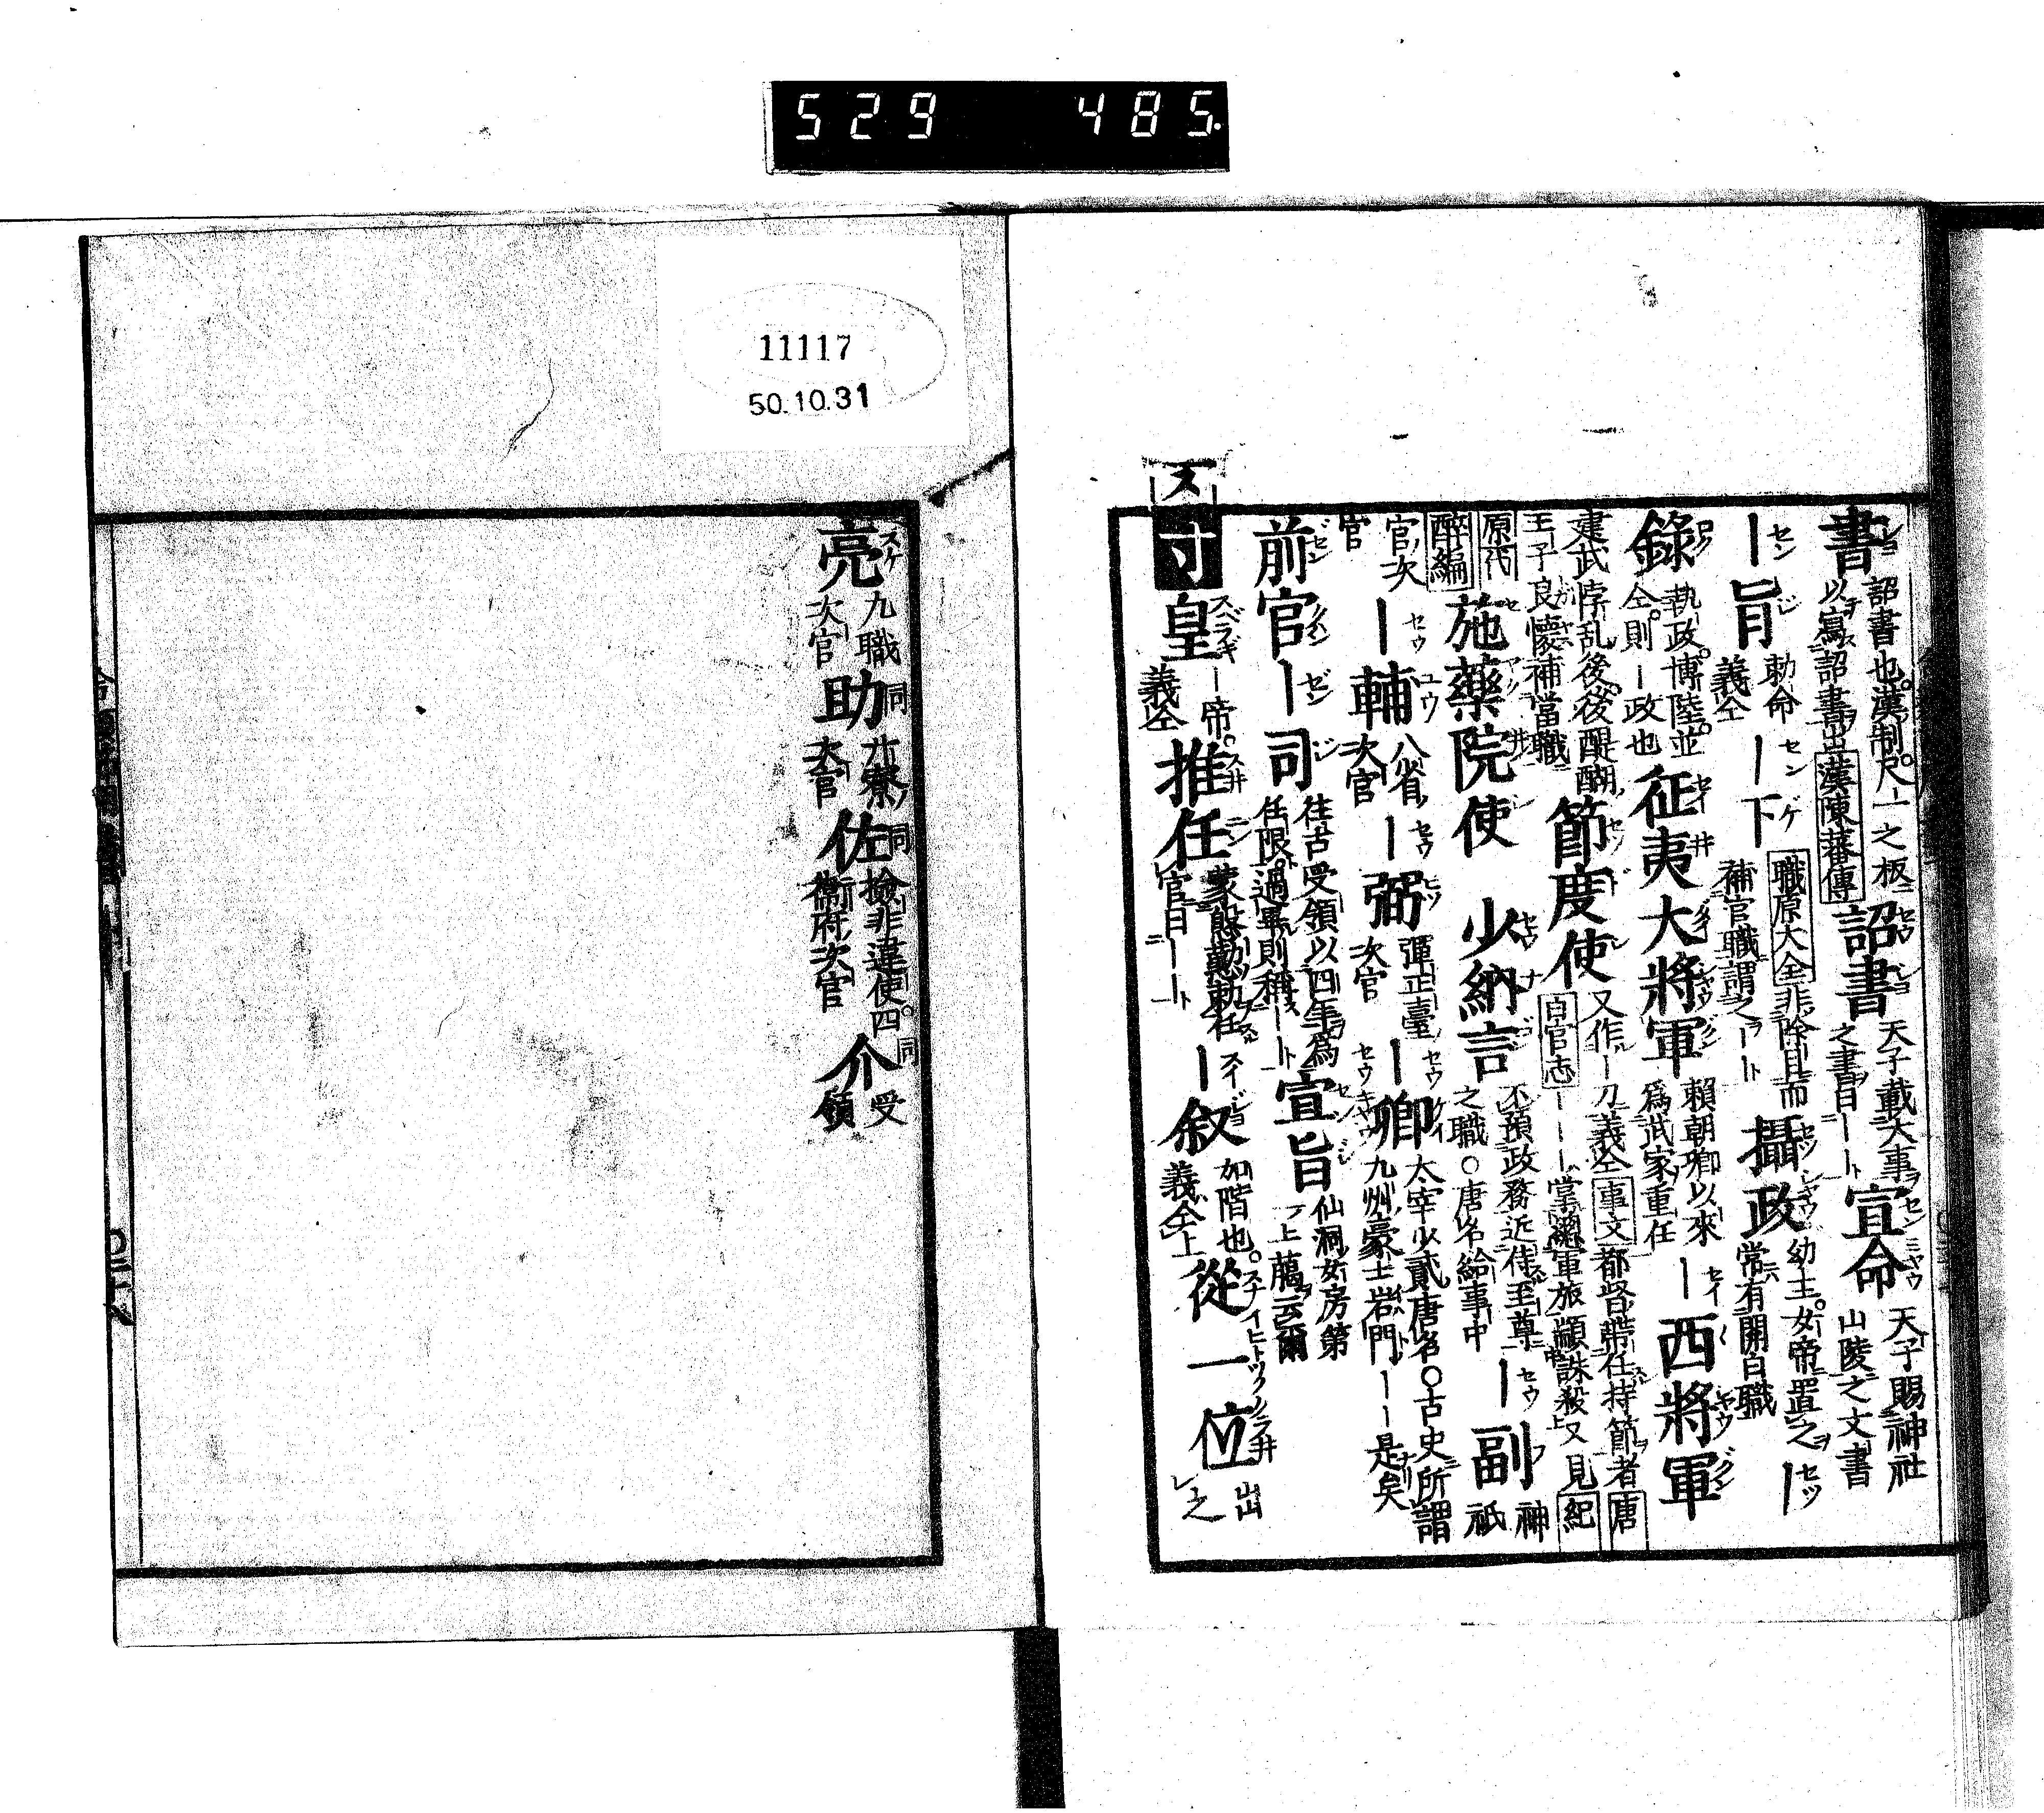 529 485.
書 詔書也漢制尺一之板以寫詔書出漢陳蕃傳 詔書 天子載大事之書曰――ト 宣命 天子賜神社山陵之文書
―旨 勅命義仝 ―下 職原大全非除目而補官職謂之――ト 攝政 幼主女帝置之常有開白職 ―
錄 執政博陸並仝則―政也 征夷大將軍 賴朝卿以來爲武家重任 ―西將軍
建武悖乱後後醍醐王子良懷補當職 節度使 又作―刀義仝事文都督帶任持節者唐百官志―――掌總軍旅顓誅殺又見紀
原 醉編 施藥院使 少納言 不預政務近侍至尊之職○唐名給事中 ―副 神祇
官次官 ―輔 八省次官 ―弼 彈正臺次官 ―卿 太宰少貳唐名○古史所謂九州豪士岩門――是矣
前官―司 往古受領以四年爲任限過畢則稱――ト 宣旨 仙洞女房第一上﨟云爾
ス 寸 皇 ―帝義仝 推任 官曰――ト ―叙 加階也義仝上 從一位
11117
50.10.31
亮 九職次官 助 寮次官 佐 撿非違使四衞府次官 介 受領